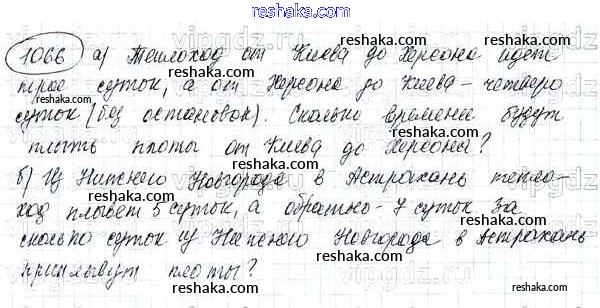 reshaka.com
1066 а) Теплоход от Киева до Херсона идет
reshaka.com reshaka.com
трое суток, а от Херсона до Киева - четверо
reshaka.com
суток (без остановок). Сколько времени будут
reshaka.com reshaka.com
плыть плоты от Киева до Херсона?
reshaka.com
б) Из Нижнего Новгорода в Астрахань тепло-
reshaka.com reshaka.com
ход плывет 5 суток, а обратно - 7 суток За
reshaka.com
сколько суток из Нижнего Новгорода в Астрахань
reshaka.com reshaka.com
приплывут плоты?
reshaka.com